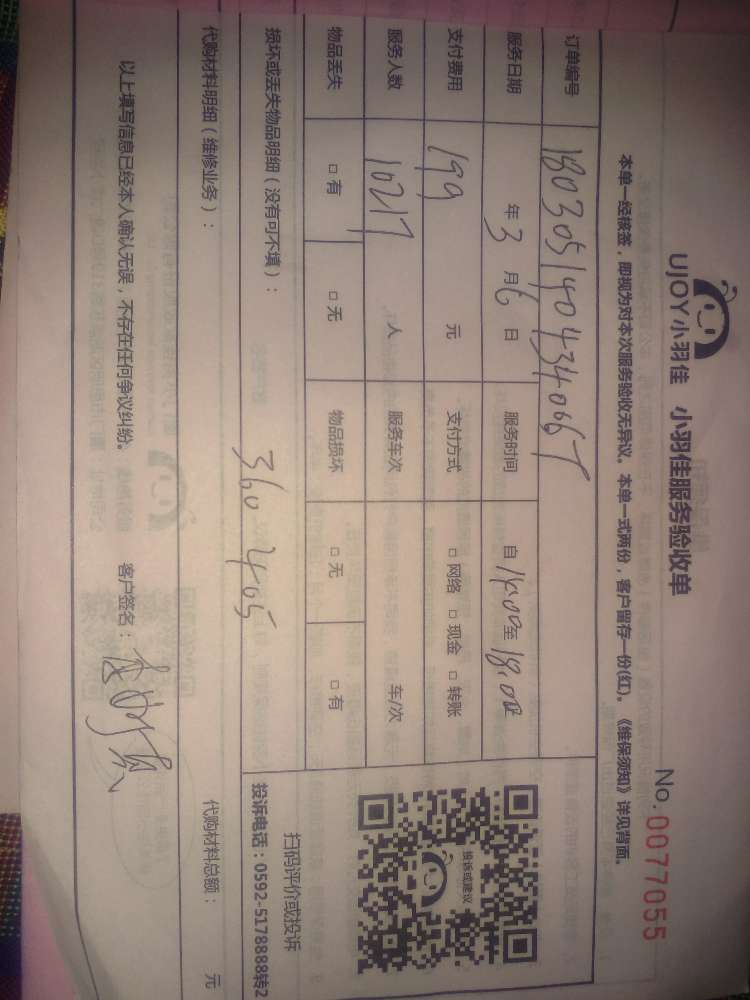 UJOY小羽佳 小羽佳服务验收单
No.0077055
本单一经核签，即视为对本次服务验收无异议。本单一式两份，客户留存一份(红)。《维保须知》详见背面。
订单编号 1803051404340667
服务日期 年 3 月 6 日 服务时间 自 14:00 至 18:00
支付费用 199 元 支付方式 □ 网络 □ 现金 □ 转账
服务人数 10217 人 服务车次 车/次
物品丢失 □ 有 □ 无 物品损坏 □ 无 □ 有
投诉或建议
扫码评价或投诉
投诉电话：0592-5178888转2
损坏或丢失物品明细（没有可不填）：
360 405
代购材料明细（维修业务）： 代购材料总额： 元
以上填写信息已经本人确认无误，不存在任何争议纠纷。 客户签名：